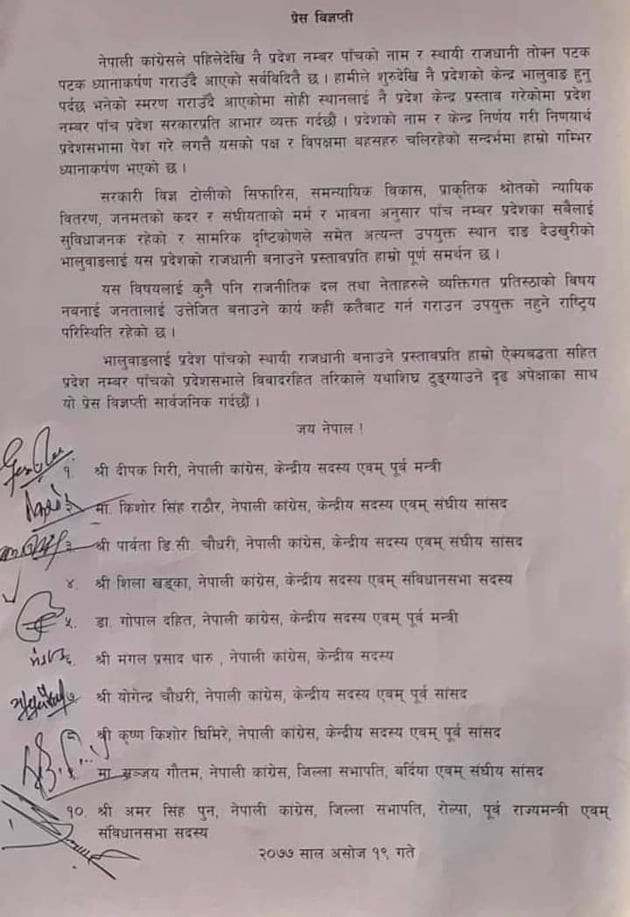 प्रेस विज्ञप्ती
नेपाली कांग्रेसले पहिलेदेखि नै प्रदेश नम्बर पाँचको नाम र स्थायी राजधानी तोक्न पटक
पटक ध्यानाकर्षण गराउँदै आएको सर्वविदितै छ । हामीले शुरुदेखि नै प्रदेशको केन्द्र भालुवाङ हुनु
पर्दछ भनेको स्मरण गराउँदै आएकोमा सोही स्थानलाई नै प्रदेश केन्द्र प्रस्ताव गरेकोमा प्रदेश
नम्बर पाँच प्रदेश सरकारप्रति आभार व्यक्त गर्दछौं । प्रदेशको नाम र केन्द्र निर्णय गरी निणयार्थ
प्रदेशसभामा पेश गरे लगत्तै यसको पक्ष र विपक्षमा बहसहरु चलिरहेको सन्दर्भमा हाम्रो गम्भिर
ध्यानाकर्षण भएको छ ।
सरकारी विज्ञ टोलीको सिफारिस, समन्यायिक विकास, प्राकृतिक श्रोतको न्यायिक
वितरण, जनमतको कदर र संघीयताको मर्म र भावना अनुसार पाँच नम्बर प्रदेशका सबैलाई
सुविधाजनक रहेको र सामरिक दृष्टिकोणले समेत अत्यन्त उपयुक्त स्थान दाङ देउखुरीको
भालुवाङलाई यस प्रदेशको राजधानी बनाउने प्रस्तावप्रति हाम्रो पूर्ण समर्थन छ ।
यस विषयलाई कुनै पनि राजनीतिक दल तथा नेताहरुले व्यक्तिगत प्रतिस्ठाको विषय
नबनाई जनतालाई उत्तेजित बनाउने कार्य कहीं कतैबाट गर्न गराउन उपयुक्त नहुने राष्ट्रिय
परिस्थिति रहेको छ ।
भालुवाङलाई प्रदेश पाँचको स्थायी राजधानी बनाउने प्रस्तावप्रति हाम्रो ऐक्यबद्धता सहित
प्रदेश नम्बर पाँचको प्रदेशसभाले विवादरहित तरिकाले यथाशिघ्र टुङ्ग्याउने दृढ अपेक्षाका साथ
यो प्रेस विज्ञप्ती सार्वजनिक गर्दछौं ।
जय नेपाल !
१. श्री दीपक गिरी, नेपाली कांग्रेस, केन्द्रीय सदस्य एवम् पूर्व मन्त्री
मा. किशोर सिंह राठौर, नेपाली कांग्रेस, केन्द्रीय सदस्य एवम् संघीय सांसद
३ श्री पार्वता डि.सी. चौधरी, नेपाली कांग्रेस, केन्द्रीय सदस्य एवम् संघीय सांसद
४. श्री शिला खड्का, नेपाली कांग्रेस, केन्द्रीय सदस्य एवम् संविधानसभा सदस्य
५. डा. गोपाल दहित, नेपाली कांग्रेस, केन्द्रीय सदस्य एवम् पूर्व मन्त्री
६. श्री मंगल प्रसाद थारु , नेपाली कांग्रेस, केन्द्रीय सदस्य
७ श्री योगेन्द्र चौधरी, नेपाली कांग्रेस, केन्द्रीय सदस्य एवम् पूर्व सांसद
श्री कृष्ण किशोर घिमिरे, नेपाली कांग्रेस, केन्द्रीय सदस्य एवम् पूर्व सांसद
मा. सञ्जय गौतम, नेपाली कांग्रेस, जिल्ला सभापति, बर्दिया एवम् संघीय सांसद
१०. श्री अमर सिंह पुन, नेपाली कांग्रेस, जिल्ला सभापति, रोल्पा, पूर्व राज्यमन्त्री एवम्
संविधानसभा सदस्य
२०७७ साल असोज १९ गते